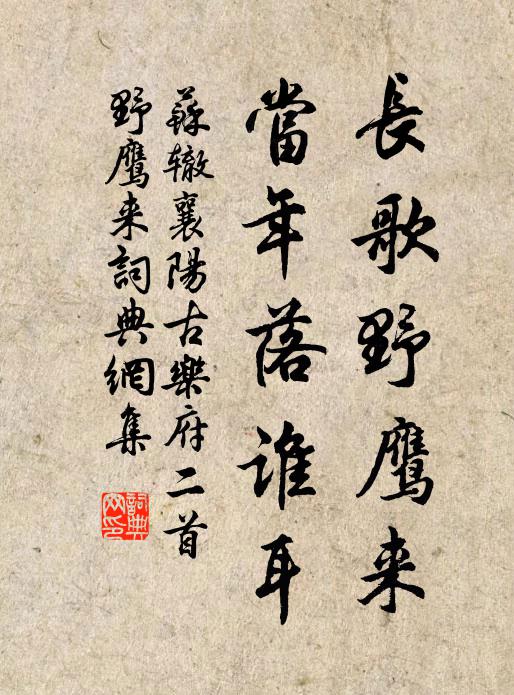 長歌野鷹来
當年落誰耳
蘇辙襄陽古樂府二首
野鷹来詞典網集
詞典网印